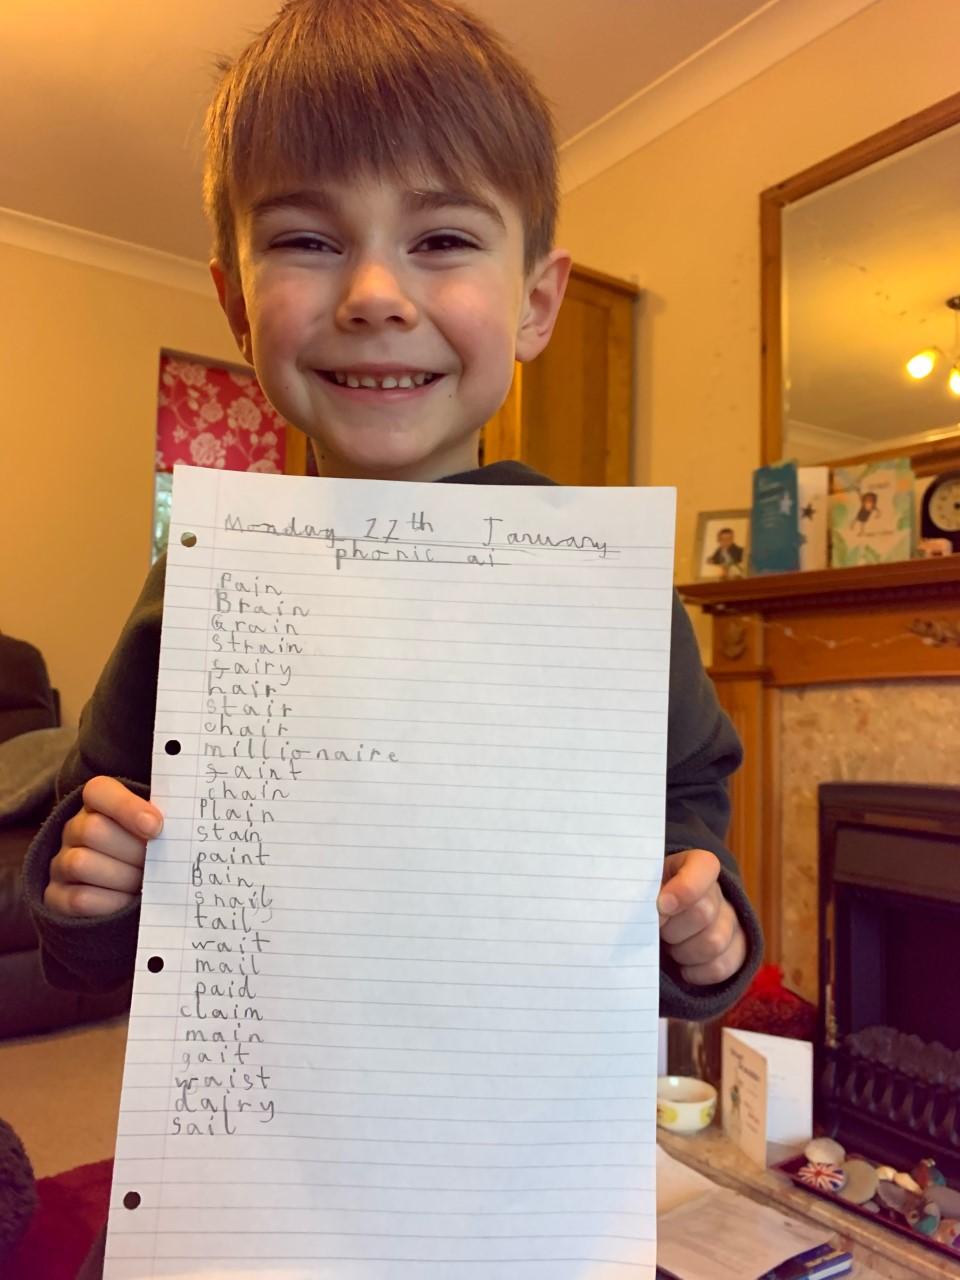 Monday 11th January
phonic ai
Pain
Brain
Grain
Strain
fairy
hair
stair
chair
millionaire
faint
chain
Plain
stain
paint
Bain
snail
tail
wait
mail
paid
claim
main
gait
waist
dairy
sail